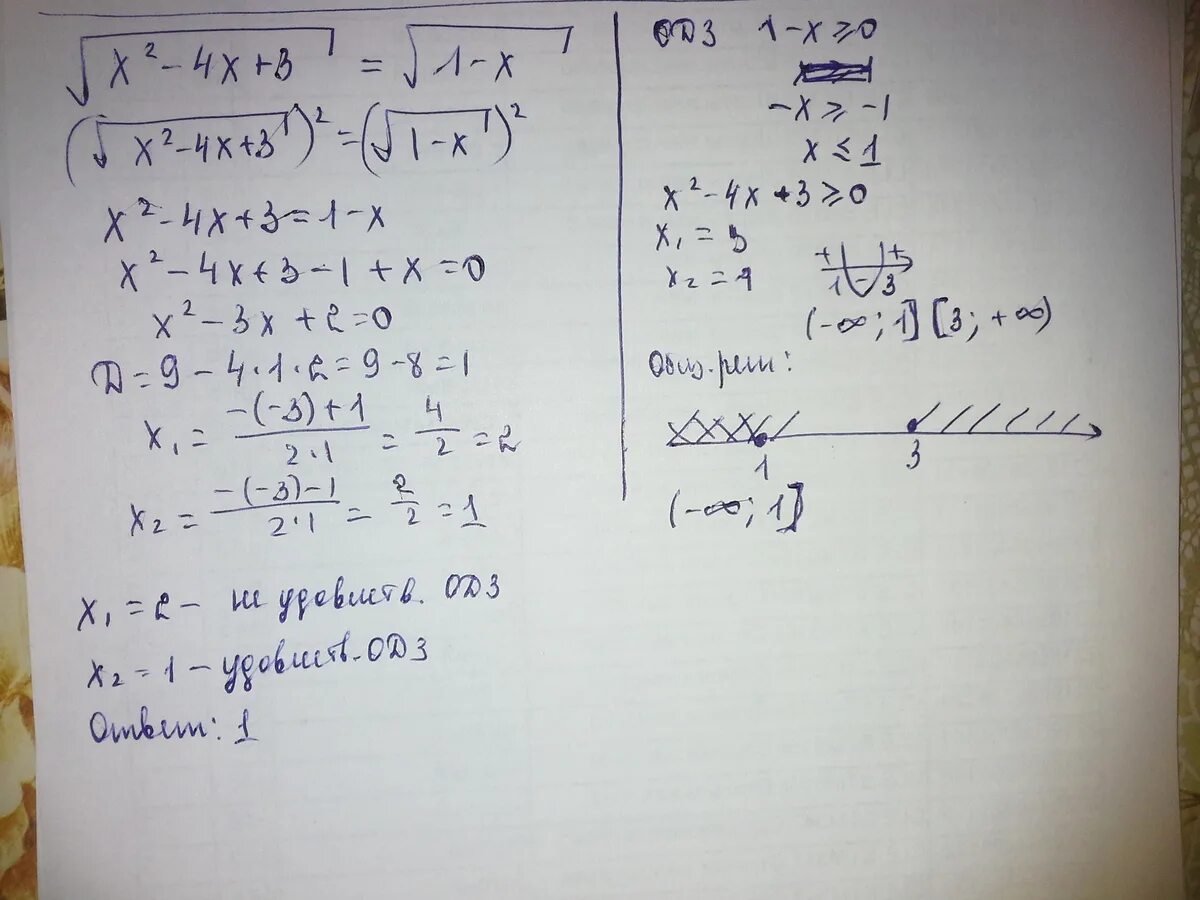 √(x² - 4x + 3) = √(1 - x)
(√(x² - 4x + 3))² = (√(1 - x))²
x² - 4x + 3 = 1 - x
x² - 4x + 3 - 1 + x = 0
x² - 3x + 2 = 0
D = 9 - 4·1·2 = 9 - 8 = 1
x₁ = (-(-3) + 1)/(2·1) = 4/2 = 2
x₂ = (-(-3) - 1)/(2·1) = 2/2 = 1
x₁ = 2 - не удовлств. ОДЗ
x₂ = 1 - удовлств. ОДЗ
Ответ: 1
ОДЗ 1 - x ≥ 0
-x ≥ -1
x ≤ 1
x² - 4x + 3 ≥ 0
x₁ = 3
x₂ = 1
+ - +
1 3
(-∞; 1] [3; +∞)
Общ. реш:
1 3
(-∞; 1]